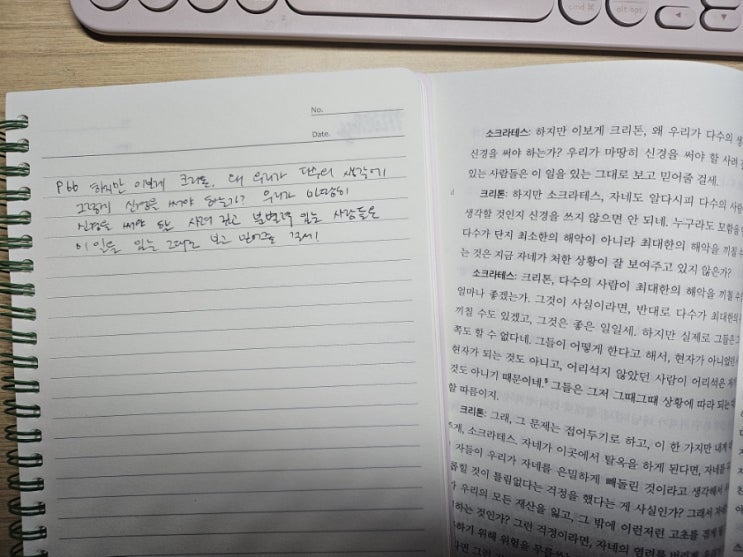 cmd ⌘
alt opt
No.
Date.
p66 하지만 이보게 크리톤, 왜 우리가 다수의 생각에
그렇게 신경을 써야 하는가? 우리가 마땅히
신경을 써야 할 사려 깊고 분별력 있는 사람들은
이 일을 있는 그대로 보고 믿어줄 걸세!
소크라테스: 하지만 이보게 크리톤, 왜 우리가 다수의
신경을 써야 하는가? 우리가 마땅히 신경을 써야 할 사려
있는 사람들은 이 일을 있는 그대로 보고 믿어줄 걸세.
크리톤: 하지만 소크라테스, 자네도 알다시피 다수의
생각할 것인지 신경을 쓰지 않으면 안 되네. 누구라도 모함을
다수가 단지 최소한의 해악이 아니라 최대한의 해악을 끼칠 수
는 것은 지금 자네가 처한 상황이 잘 보여주고 있지 않은가?
소크라테스: 크리톤, 다수의 사람이 최대한의 해악을 끼칠 수
얼마나 좋겠는가. 그것이 사실이라면, 반대로 다수가 최대한의
끼칠 수도 있겠고, 그것은 좋은 일일세. 하지만 실제로 그들은
쪽도 할 수 없다네. 그들이 어떻게 한다고 해서, 현자가 아니었던
현자가 되는 것도 아니고, 어리석지 않았던 사람이 어리석은
것도 아니기 때문이네. 그들은 그저 그때그때 상황에 따라 되는
할 따름이지.
크리톤: 그래, 그 문제는 접어두기로 하고, 이 한 가지만
소크라테스. 자네가 이곳에서 탈옥을 하게 된다면,
자들이 우리가 자네를 은밀하게 빼돌린 것이라고 생각해서
것이 틀림없다는 걱정을 했다는 게 사실인가? 그래서
우리의 모든 재산을 잃고, 그 밖에 이런저런 고초를 겪게
하는 것인가? 그런 걱정이라면, 자네의 염려를
하기 위해 위험을